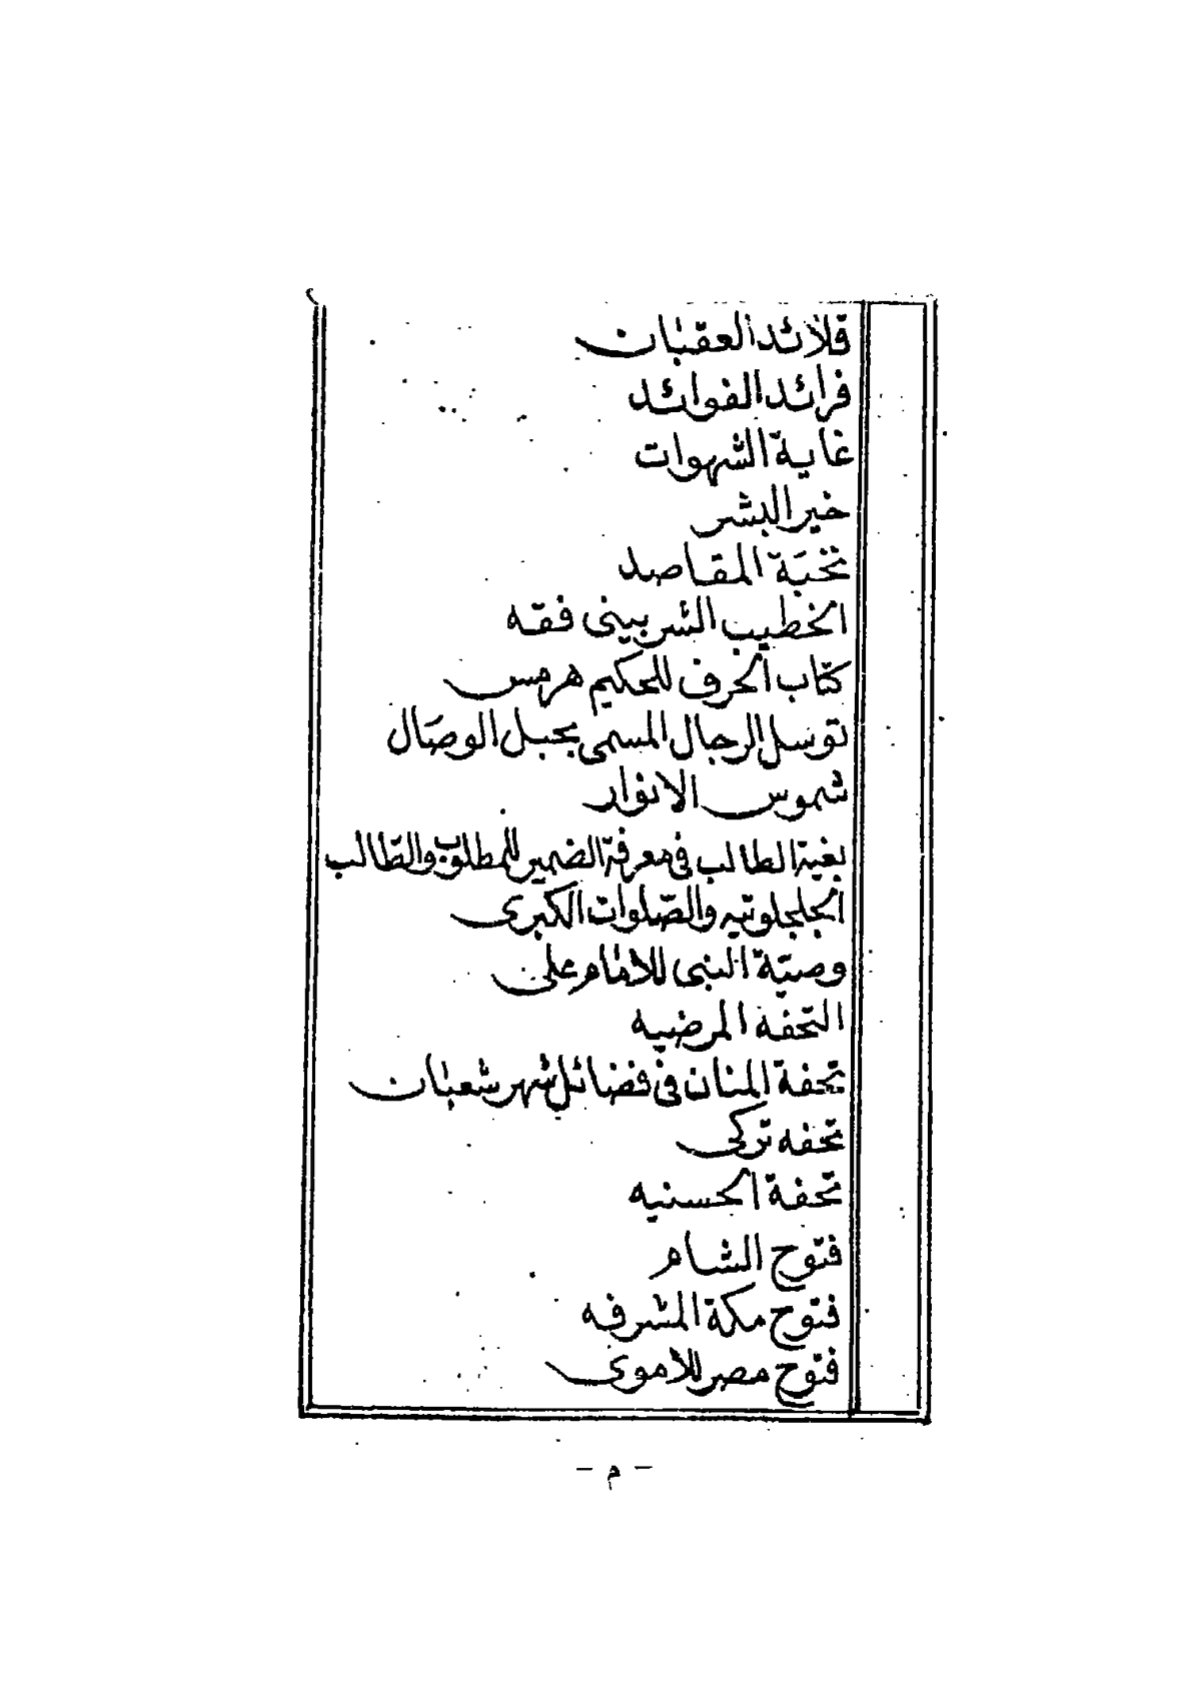 قلائد العقبان
فرائد الفوائد
غاية الشهوات
خير البشر
نخبة المقاصد
الخطيب الشربيني فقه
كتاب الحرف للحكيم هرمس
توسل الرجال المسمى بحبل الوصال
شموس الانوار
بغية الطالب في معرفة الضمير للمطلوب والطالب
الجلجلوتيه والصلوات الكبرى
وصية النبي للامام على
التحفه المرضيه
تحفة المنان في فضائل شهر شعبان
تحفه تركى
تحفة الحسنيه
فتوح الشام
فتوح مكة المشرفه
فتوح مصر للاموى
- م -